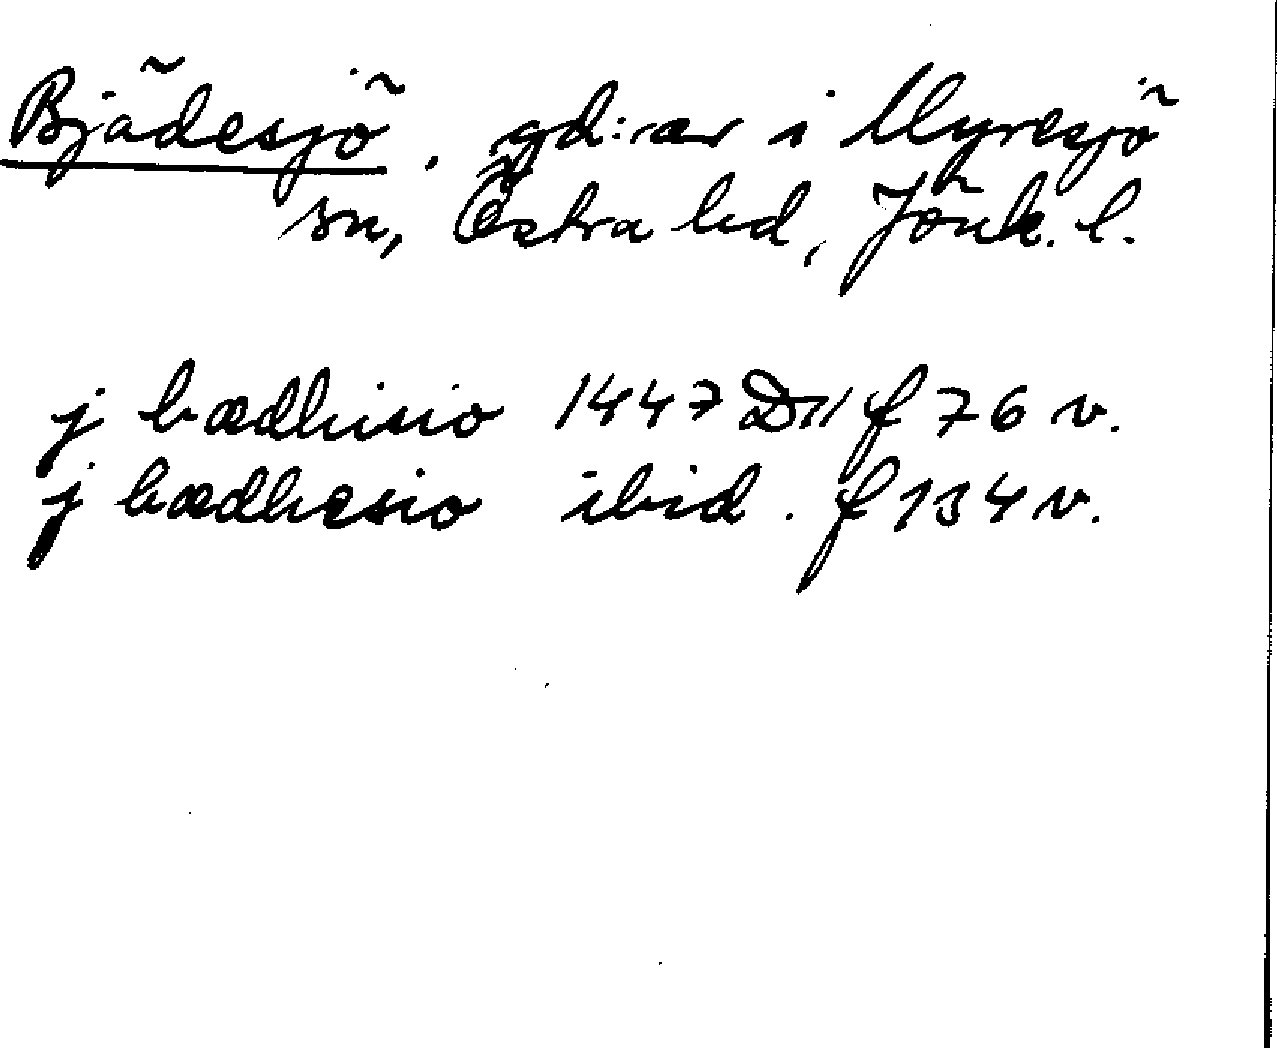 Bjädesjö, gd:ar i Myresjö
sn, Östra hd, Jönk. l.
j bædhisio 1447 D11 f 76 v.
j bædhesio ibid. f 134 v.